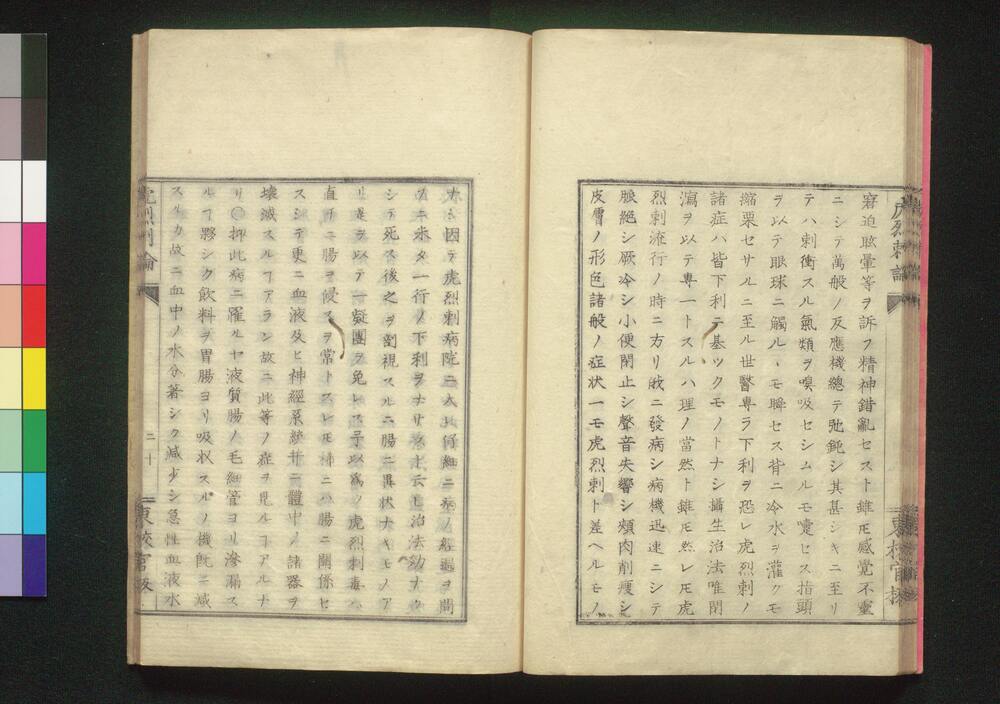 虎烈刺論
窘迫眩暈等ヲ訴フ精神錯亂セスト雖𪜈感覚不靈
ニシテ萬般ノ反應機總テ弛鈍シ其甚シキニ至リ
テハ刺衝スル氣類ヲ嗅吸セシムルモ嚏セス指頭
ヲ以テ眼球ニ觸ルヽモ瞬セス背ニ冷水ヲ灌クモ
縮栗セサルニ至ル世醫専ラ下利ヲ恐レ虎烈刺ノ
諸症ハ皆下利ニ基ツクモノトナシ攝生治法唯閉
瀉ヲ以テ専一トスルハ理ノ當然ト雖𪜈然レ𪜈虎
烈刺流行ノ時ニ方リ啟ニ發病シ病機迅速ニシテ
脈絶シ厥冷シ小便閉止シ聲音失響シ頬肉削瘦シ
皮膚ノ形色諸般ノ症状一モ虎烈刺ト差ヘルモノ
ナシ因テ虎烈刺病院ニ入此得細ニ病ノ経過ヲ閲
スニ未タ一行ノ下利ヲナサス云ヒ治法効ナク
シテ死ス後之ヲ剖視スルニ腸ニ異状ナキモノア
リ是ヲ以テ一疑團ヲ免レス予以爲ク虎烈刺毒ハ
直チニ腸ヲ侵スヲ常トスレ𪜈稀ニハ腸ニ關係セ
スシテ更ニ血液及ヒ神經系統并ニ體中ノ諸器ヲ
壊滅スルヿアラン故ニ此等ノ症ヲ見ルヿアルナ
リ○抑此病ニ罹ルヤ液質腸ノ毛細管ヨリ滲漏ス
ルヿ夥シク飲料ヲ胃腸ヨリ吸収スルノ機既ニ減
スルカ故ニ血中ノ水分著シク減少シ急性血液水
虎烈刺論
二十
東校官版